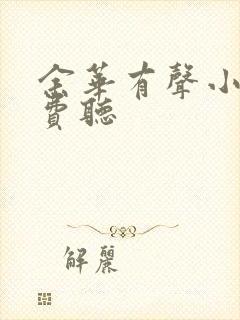 金華有聲小
費聽
解麗